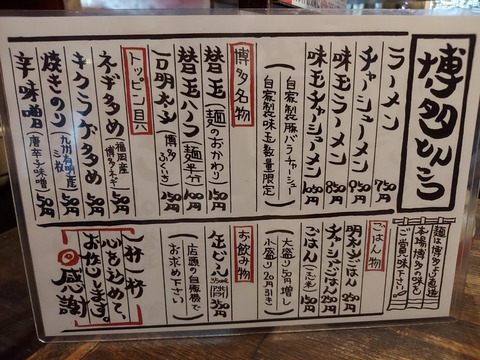 博多とんこつ
ラーメン 750円
チャーシューメン 950円
味玉ラーメン 850円
味玉チャーシューメン 1050円
(自家製豚バラチャーシュー
自家製味玉数量限定)
博多名物
替玉(麺のおかわり) 150円
替玉ハーフ(麺半分) 100円
一口明太子(博多ふくいち) 150円
トッピン具
ネギ多め(福岡産博多ネギ) 50円
キクラゲ多め 50円
焼きのり(九州有明産 三枚) 50円
辛味噌(唐辛子味噌) 50円
麺は博多より直送
本場博多の味を
ご賞味下さい。
ごはん物
明太ごはん 350円
チャーシューごはん 250円
ごはん 150円
大盛り50円増し
小盛り20円引き
お飲み物
缶ビール
(店頭の自販機で
お求め下さい)
一杯一杯
心を込めて、
お作りします。
感謝